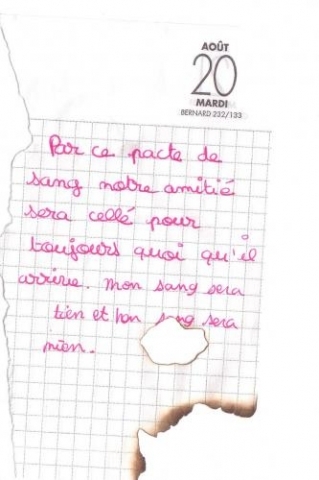 AOÛT
20
MARDI
BERNARD 232/133
Par ce pacte de
sang notre amitié
sera cellé pour
toujours quoi qu'il
arrive. Mon sang sera
tien et ton sang sera
mien.